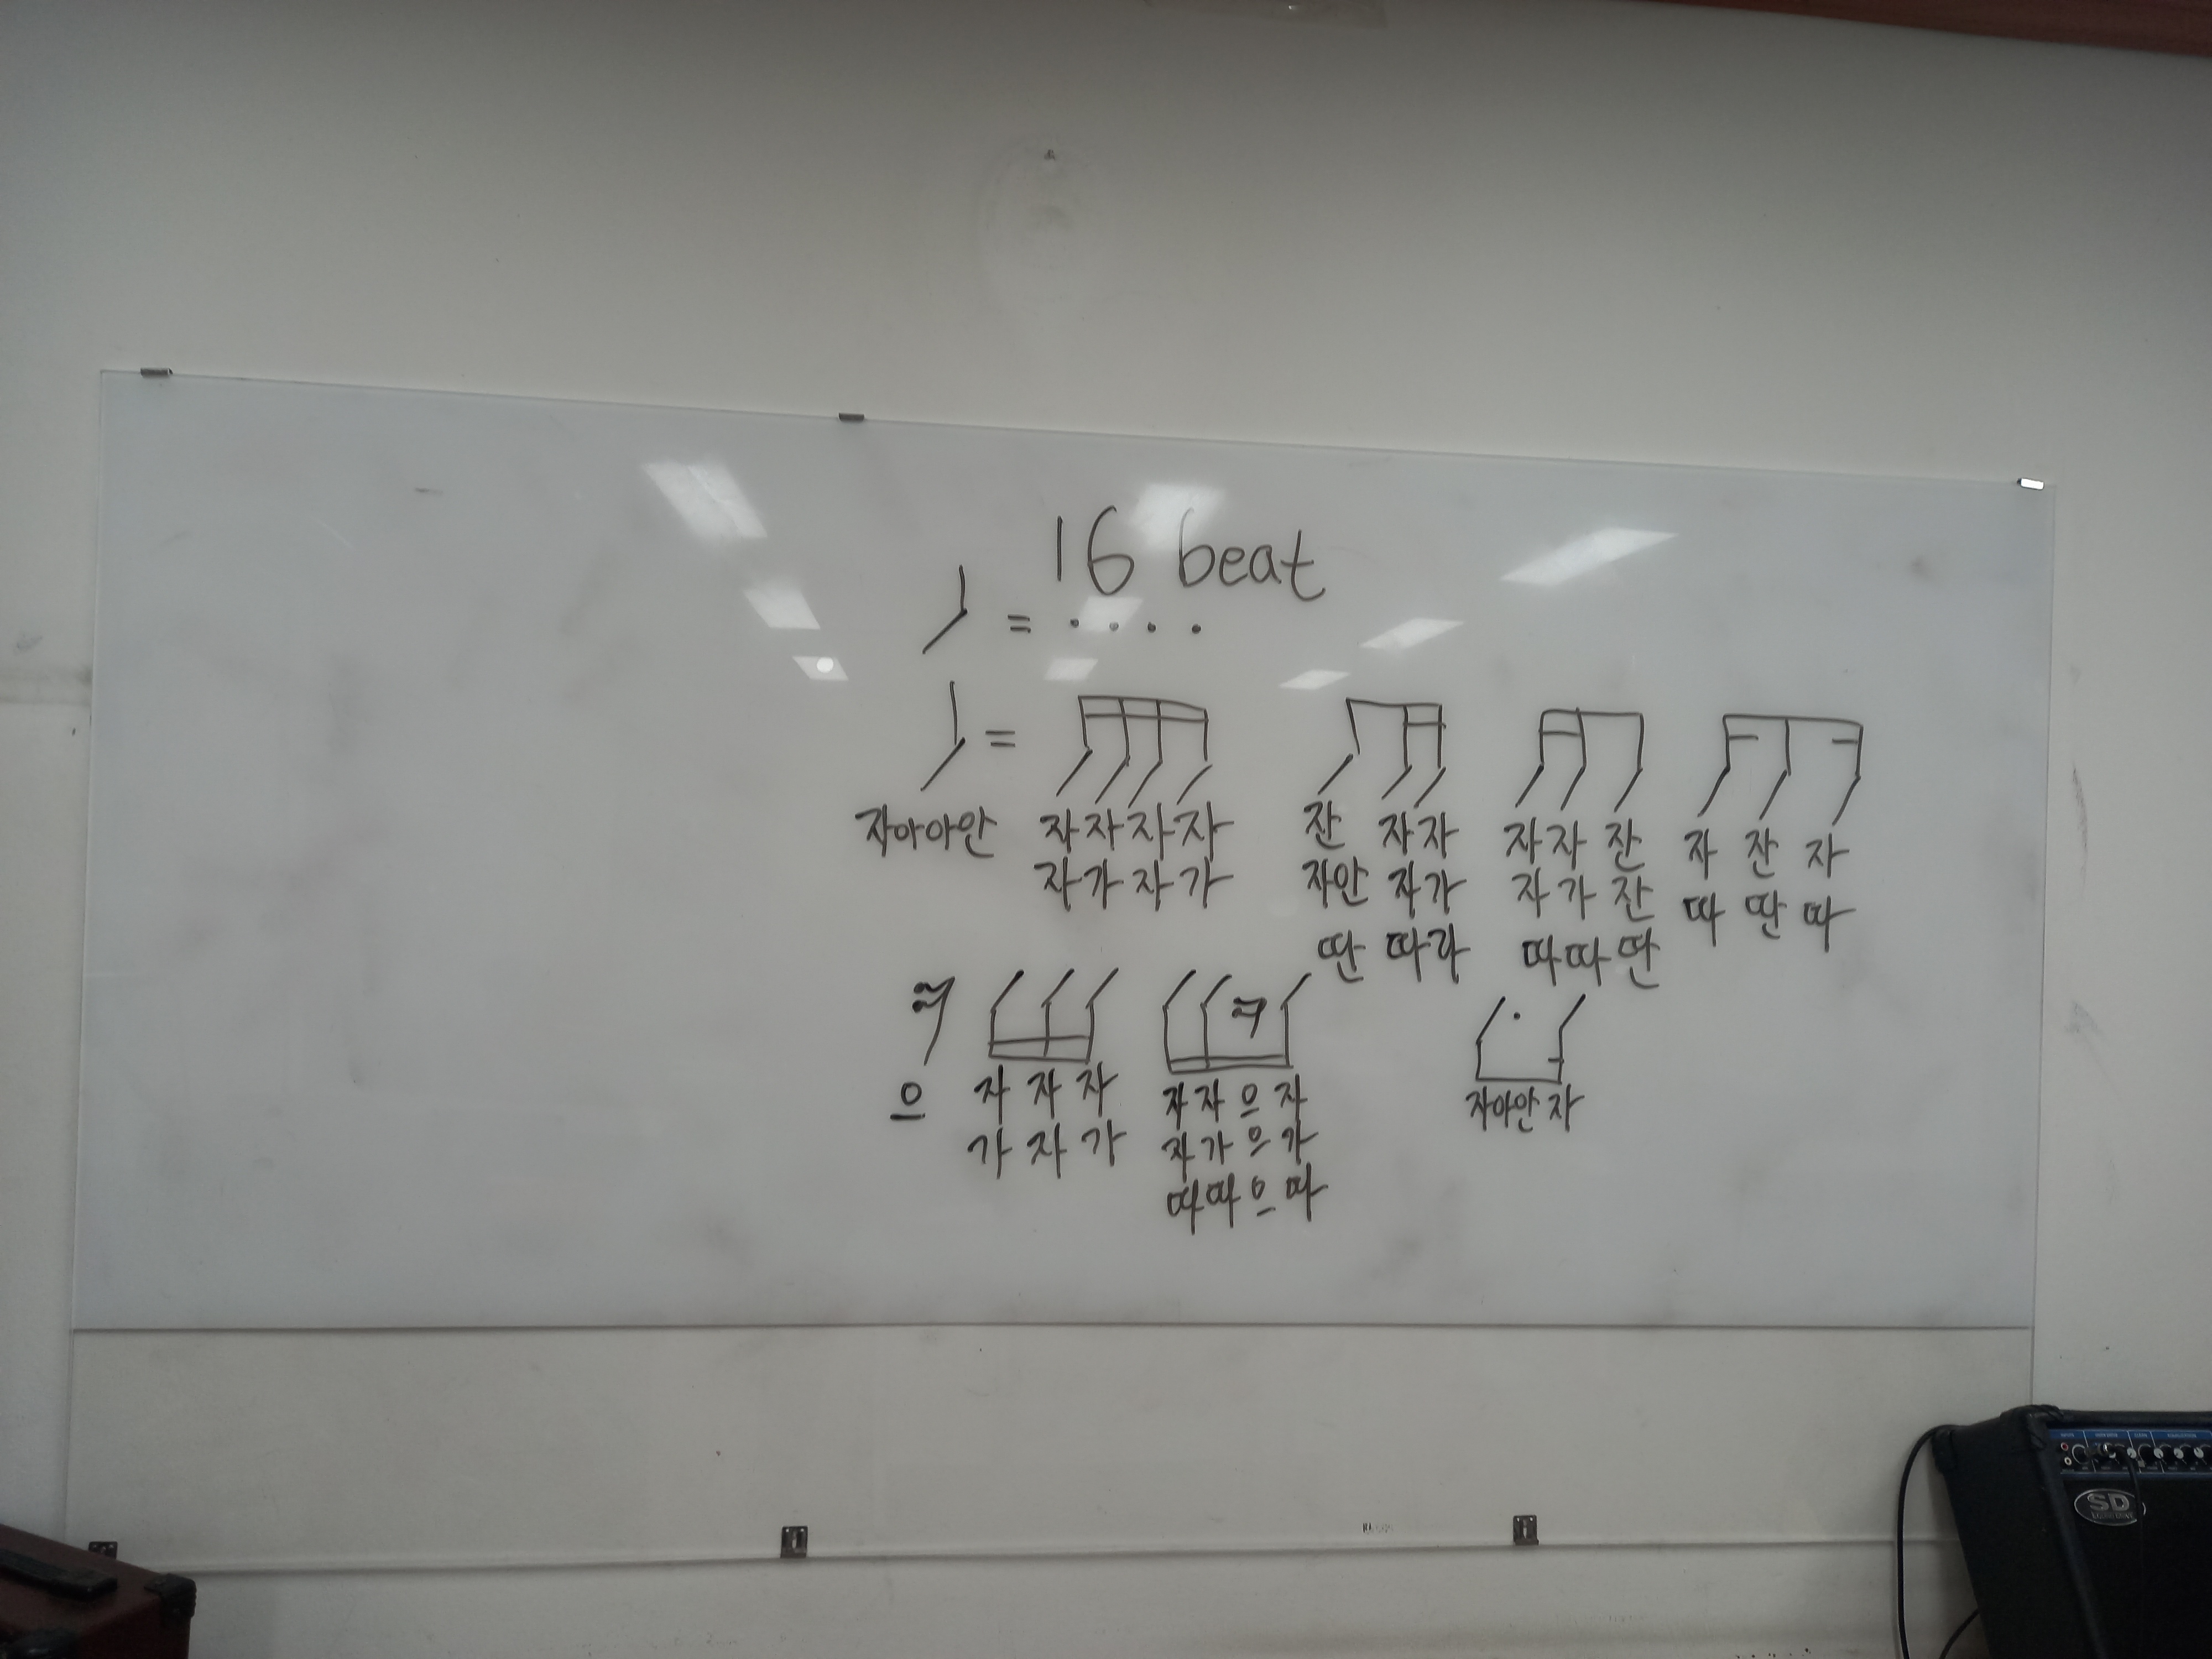 16 beat
= . . . .
=
자아아안 자자자자 잔 자자 자자 잔 자 잔 자
자가자가 자안 자가 자가 잔 따 딴 따
딴 따라 따따 딴
으 자 자 자 자자으자 자아안 자
가 자 가 자가으가
따따으따
SD